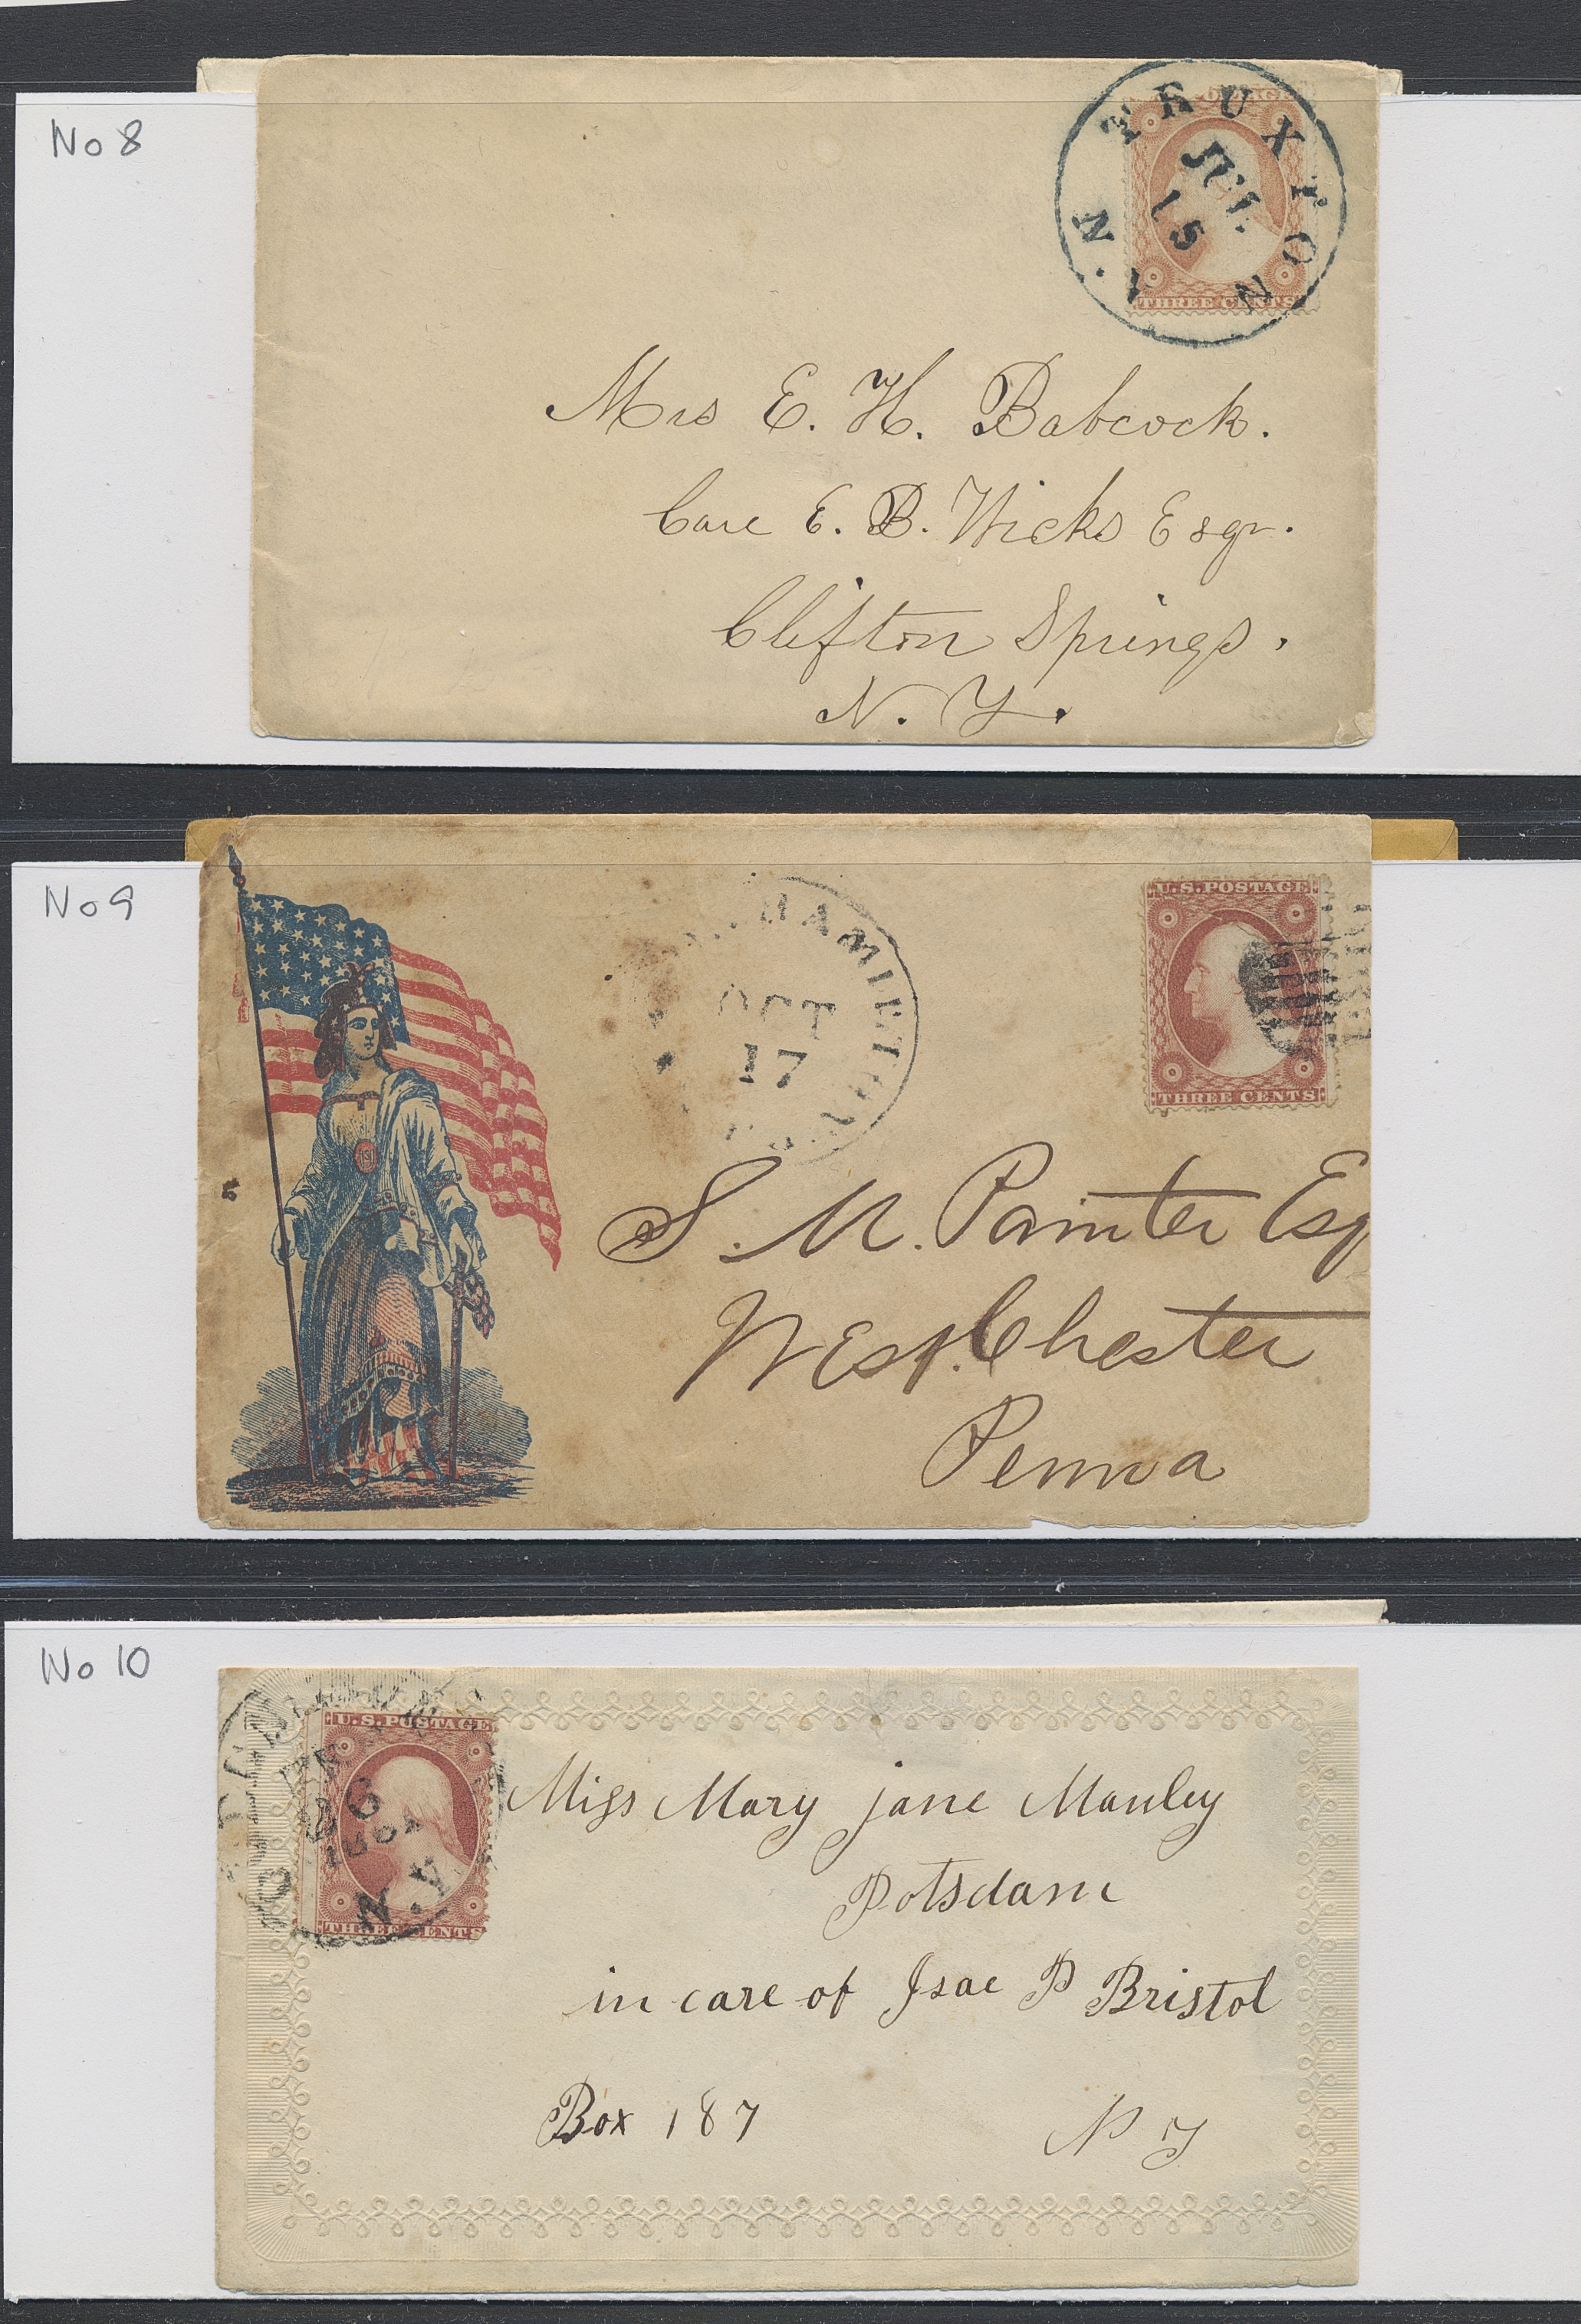 No 8
TRUXTON
N.Y.
JUL
15
THREE CENTS
Mrs E. H. Babcock.
Care E. B. Wicks Esqr.
Clifton Springs.
N. Y.
No 9
OCT
17
U.S. POSTAGE
THREE CENTS
S. M. Painter Esq
West Chester
Penna
No 10
U.S. POSTAGE
26
N.Y
THREE CENTS
Miss Mary jane Manley
Potsdam
in care of Isac P Bristol
Box 187
N Y